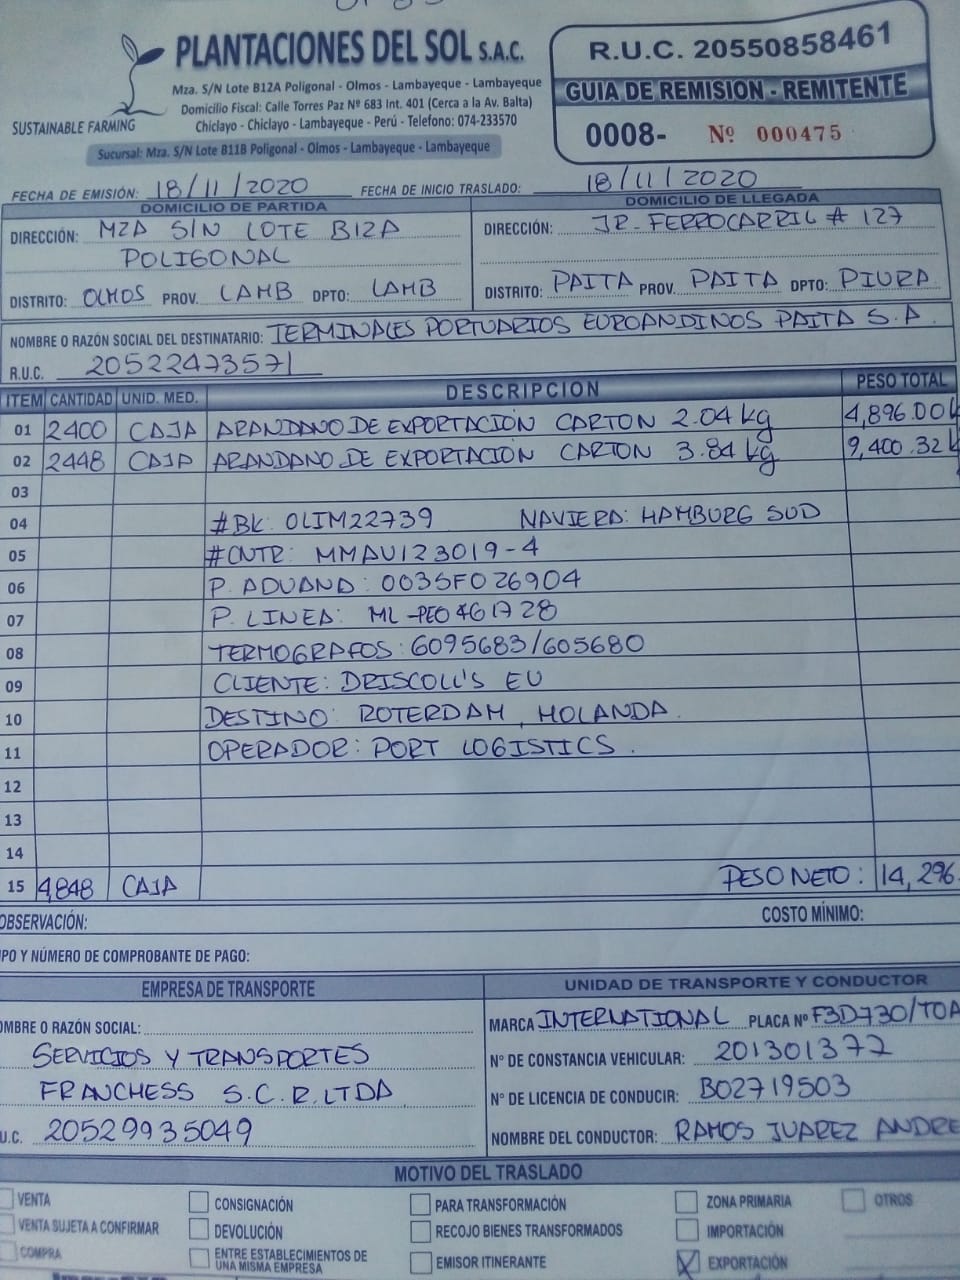 PLANTACIONES DEL SOL S.A.C.
Mza. S/N Lote B12A Poligonal - Olmos - Lambayeque - Lambayeque
Domicilio Fiscal: Calle Torres Paz Nº 683 Int. 401 (Cerca a la Av. Balta)
Chiclayo - Chiclayo - Lambayeque - Perú - Telefono: 074-233570
SUSTAINABLE FARMING
Sucursal: Mza. S/N Lote B11B Poligonal - Olmos - Lambayeque - Lambayeque
R.U.C. 20550858461
GUIA DE REMISION - REMITENTE
0008- Nº 000475
FECHA DE EMISIÓN: 18/11/2020 FECHA DE INICIO TRASLADO: 18/11/2020
DOMICILIO DE PARTIDA
DIRECCIÓN: MZA S/N LOTE B12A
POLIGONAL
DISTRITO: OLMOS PROV. LAMB DPTO: LAMB
DOMICILIO DE LLEGADA
DIRECCIÓN: JR. FERROCARRIL # 127
DISTRITO: PAITA PROV. PAITA DPTO: PIURA
NOMBRE O RAZÓN SOCIAL DEL DESTINATARIO: TERMINALES PORTUARIOS EUROANDINOS PAITA S.A.
R.U.C. 20522473571
ITEM CANTIDAD UNID. MED. DESCRIPCION PESO TOTAL
01 2400 CAJA ARANDANO DE EXPORTACIÓN CARTON 2.04 kg 4,896.00 k
02 2448 CAJA ARANDANO DE EXPORTACIÓN CARTON 3.84 kg 9,400.32 k
03
04 #BK: OLIM22739 NAVIERA: HAMBURG SUD
05 #CNTR: MMAU123019-4
06 P. ADUANA: 0035F026904
07 P. LINEA: ML-PE0461728
08 TERMOGRAFOS: 6095683/605680
09 CLIENTE: DRISCOLL'S EU
10 DESTINO: ROTERDAM, HOLANDA.
11 OPERADOR: PORT LOGISTICS.
12
13
14
15 4,848 CAJA PESO NETO: 14,296.
OBSERVACIÓN: COSTO MÍNIMO:
IPO Y NÚMERO DE COMPROBANTE DE PAGO:
EMPRESA DE TRANSPORTE
OMBRE O RAZÓN SOCIAL:
SERVICIOS Y TRANSPORTES
FRANCHESS S.C.R.LTDA
U.C. 20529935049
UNIDAD DE TRANSPORTE Y CONDUCTOR
MARCA INTERNATIONAL PLACA Nº F3D730/TOA
Nº DE CONSTANCIA VEHICULAR: 201301377
Nº DE LICENCIA DE CONDUCIR: B02719503
NOMBRE DEL CONDUCTOR: RAMOS JUAREZ ANDRE
MOTIVO DEL TRASLADO
VENTA CONSIGNACIÓN PARA TRANSFORMACIÓN ZONA PRIMARIA OTROS
VENTA SUJETA A CONFIRMAR DEVOLUCIÓN RECOJO BIENES TRANSFORMADOS IMPORTACIÓN
COMPRA ENTRE ESTABLECIMIENTOS DE EMISOR ITINERANTE X EXPORTACIÓN
UNA MISMA EMPRESA